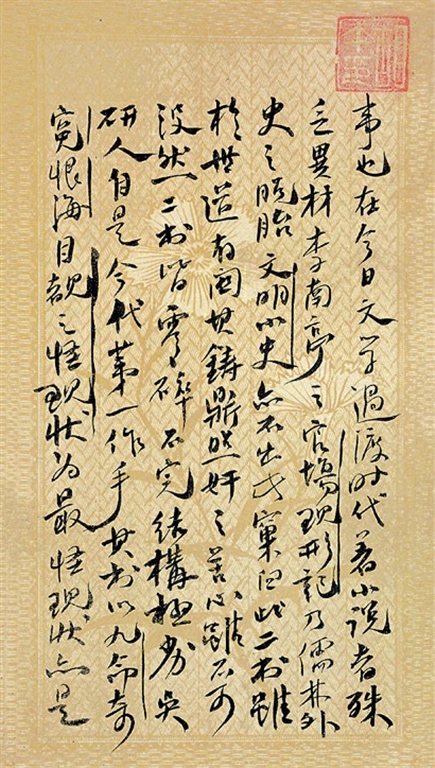 事也在今日文学過渡时代著小说者殊
乏異材李南亭之官場现形記乃儒林外
史之脱胎文明小史亦不出此窠臼此二书雖
於世道有関其鑄鼎照奸之苦心雖不可
没然二书皆零碎不完结構極劣吴
研人自是今代第一作手其书以九命奇
冤恨海目覩之怪现状为最怪现状亦是